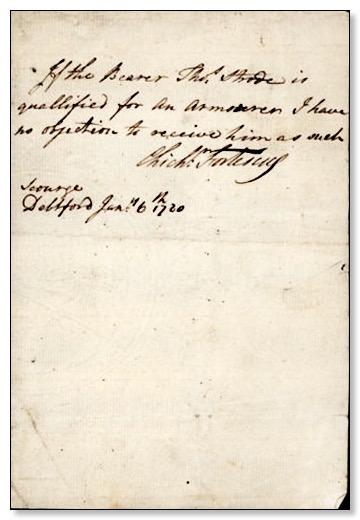 If the Bearer Tho.s Strode is
quallified for an Armourer I have
no objection to receive him as such
Chich.r Fortescue
Scourge
Deptford Jan.y 6th 1780